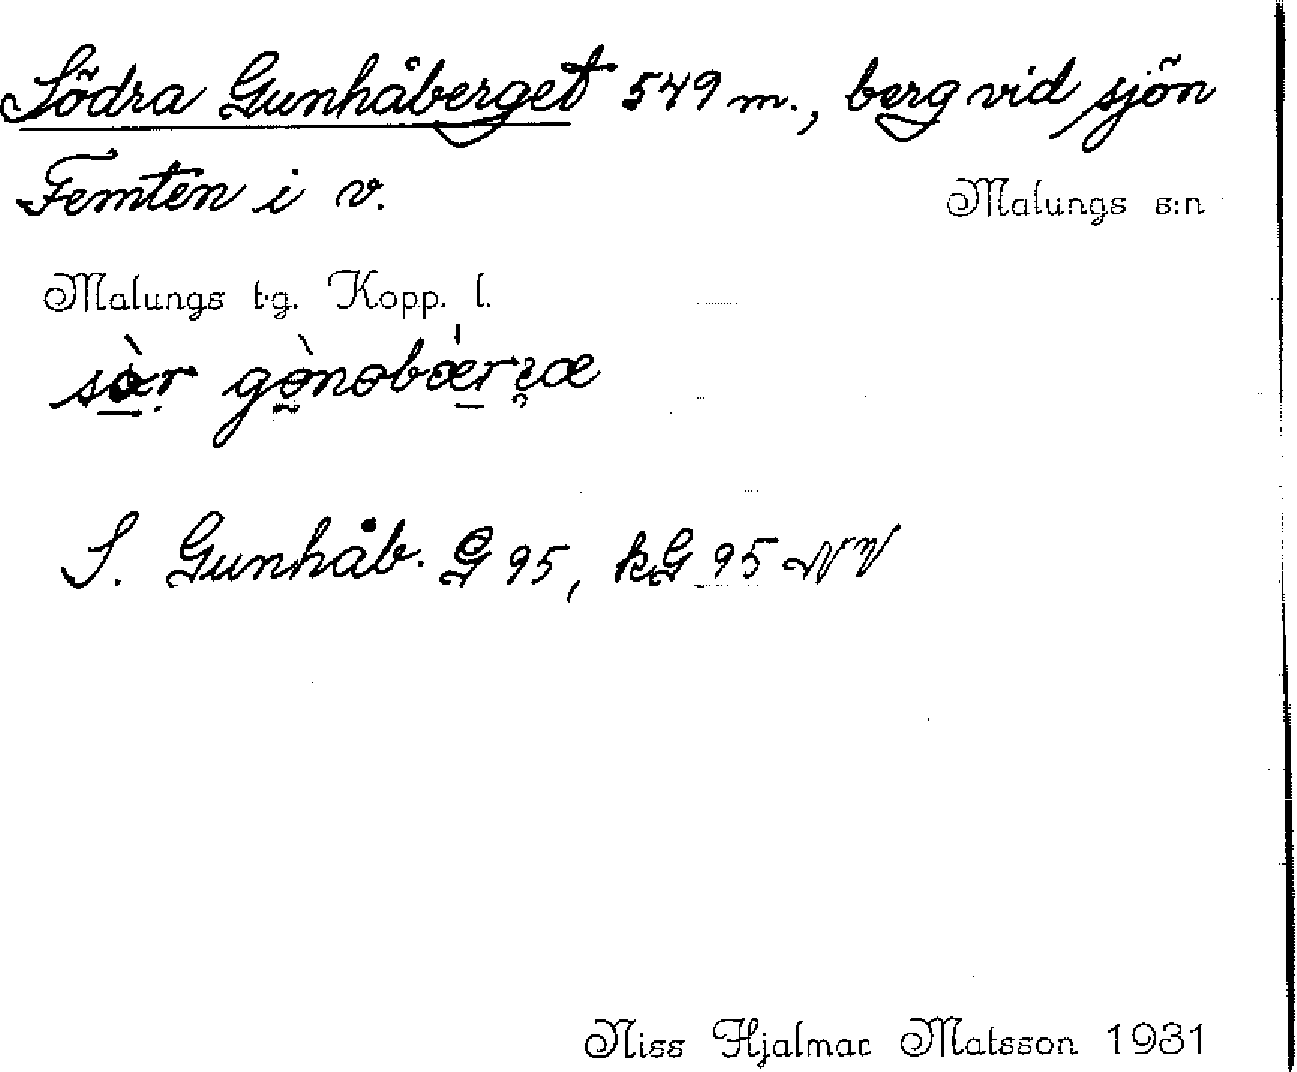 Södra Gunhåberget 549 m., berg vid sjön
Femten i v. Malungs s:n
Malungs tg. Kopp. l.
S. Gunhåb. G 95, kG 95 NV
Niss Hjalmar Matsson 1931